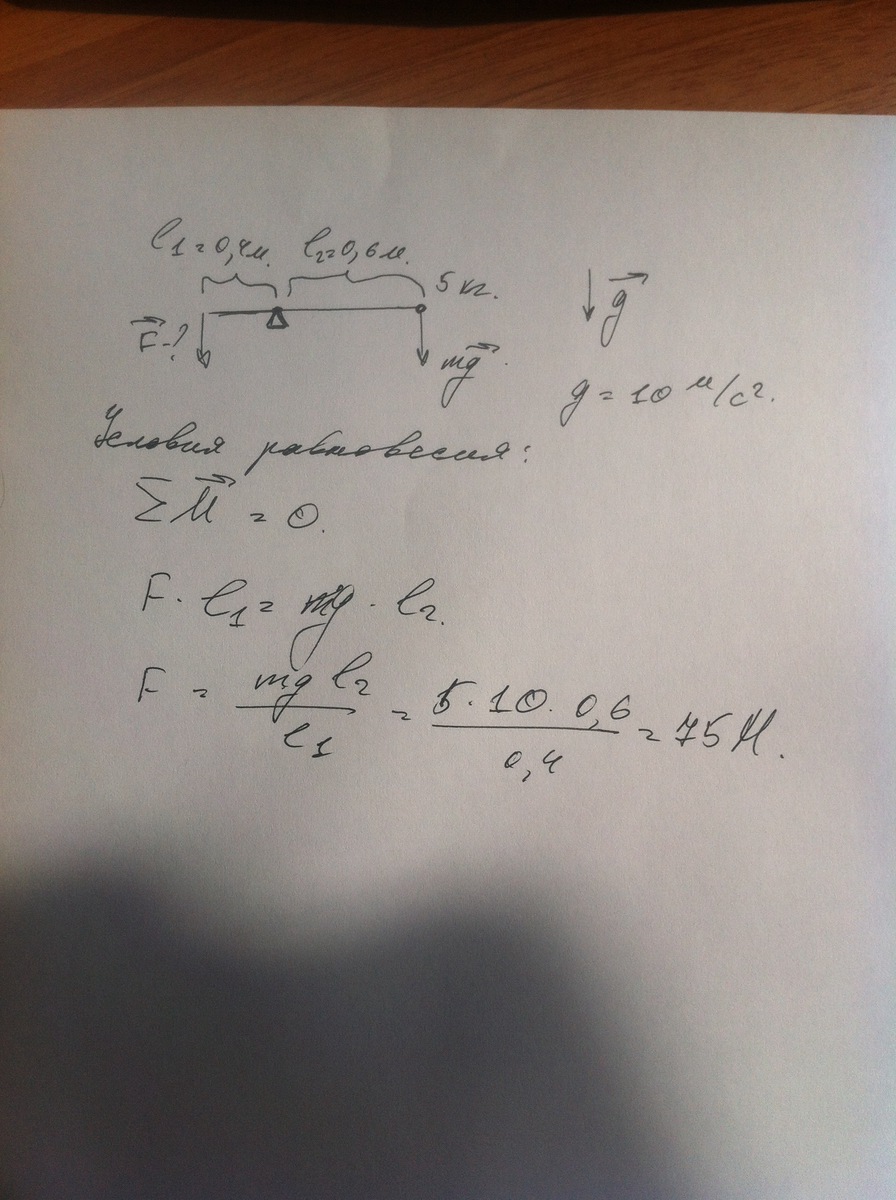 l₁=0,4м. l₂=0,6м.
5 кг.
F⃗-?
mg⃗
g⃗
g = 10 м/с².
Условия равновесия:
ΣM⃗ = 0.
F · l₁ = mg · l₂.
F = mg l₂ / l₁ = 5 · 10 · 0,6 / 0,4 = 75 Н.